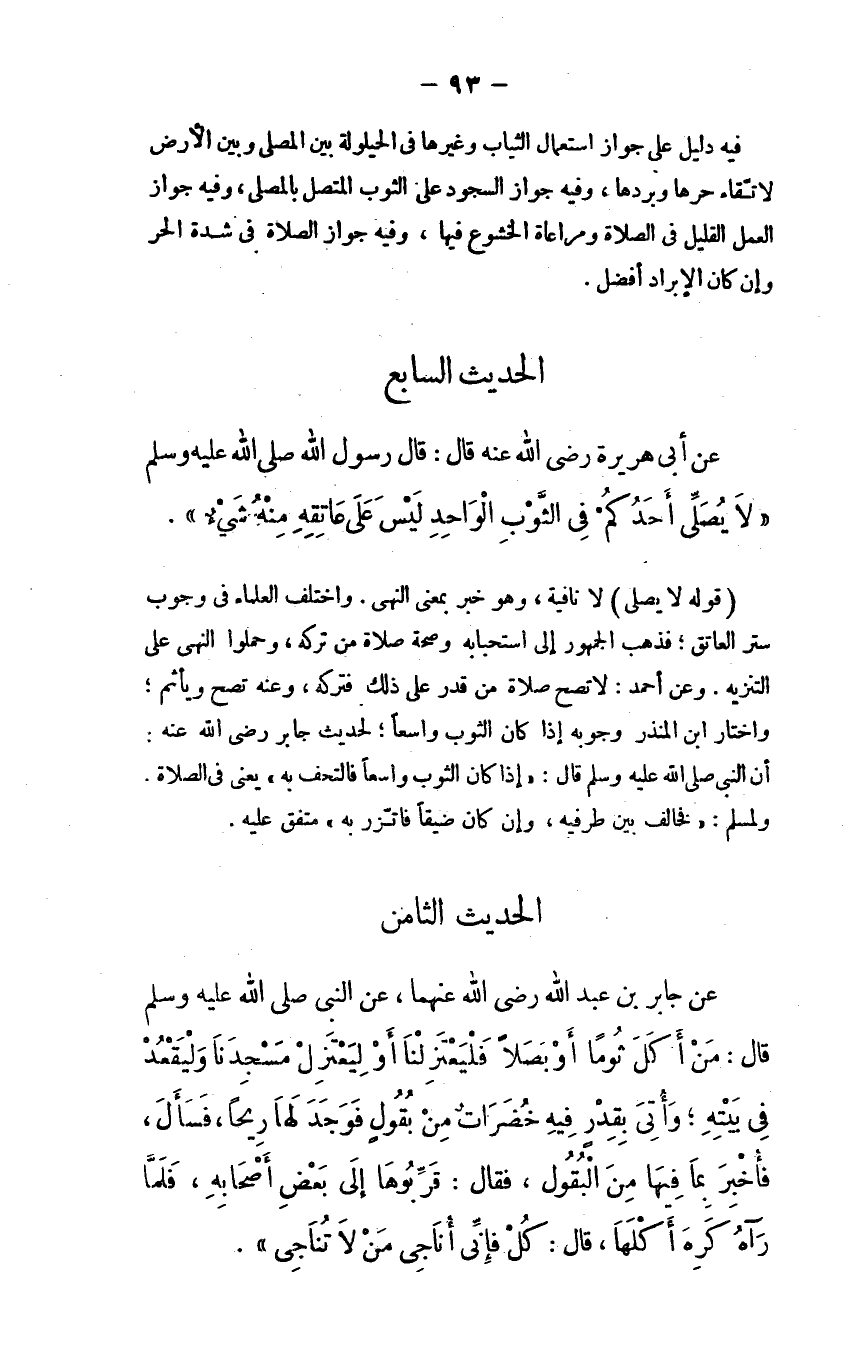 — ٩٣ —
فيه دليل على جواز استعمال الثياب وغيرها فى الحيلولة بين المصلى وبين الأرض
لاتـّقاء حرها وبردها ، وفيه جواز السجود على الثوب المتصل بالمصلى ، وفيه جواز
العمل القليل فى الصلاة ومراعاة الخشوع فيها ، وفيه جواز الصلاة فى شدة الحر
وإن كان الإبراد أفضل .
الحديث السابع
عن أبى هريرة رضى الله عنه قال : قال رسول الله صلى الله عليه وسلم
« لاَ يُصَلِّى أَحَدُكُمْ فِى الثَّوْبِ الْوَاحِدِ لَيْسَ عَلَى عَاتِقِهِ مِنْهُ شَىْءٌ » .
( قوله لا يصلى ) لا نافية ، وهو خبر بمعنى النهى . واختلف العلماء فى وجوب
ستر العاتق ؛ فذهب الجمهور إلى استحبابه وصحة صلاة من تركه ، وحملوا النهى على
التنزيه . وعن أحمد : لاتصح صلاة من قدر على ذلك فتركه ، وعنه تصح ويأثم ؛
واختار ابن المنذر وجوبه إذا كان الثوب واسعاً ؛ لحديث جابر رضى الله عنه :
أن النبى صلى الله عليه وسلم قال : « إذا كان الثوب واسعاً فالتحف به » يعنى فى الصلاة .
ولمسلم : « فخالف بين طرفيه ، وإن كان ضيقاً فاتـّزر به » متفق عليه .
الحديث الثامن
عن جابر بن عبد الله رضى الله عنهما ، عن النبى صلى الله عليه وسلم
قال : مَنْ أَكَلَ ثُومًا أَوْ بَصَلاً فَلْيَعْتَزِلْنَا أَوْ لِيَعْتَزِلْ مَسْجِدَنَا وَلْيَقْعُدْ
فِى بَيْتِهِ ؛ وَأُتِىَ بِقِدْرٍ فِيهِ خُضَرَاتٌ مِنْ بُقُولٍ فَوَجَدَ لَهَا رِيحًا ، فَسَأَلَ ،
فَأُخْبِرَ بِمَا فِيهَا مِنَ الْبُقُولِ ، فقال : قَرِّبُوهَا إِلَى بَعْضِ أَصْحَابِهِ ، فَلَمَّا
رَآهُ كَرِهَ أَكْلَهَا ، قال : كُلْ فَإِنِّى أُنَاجِى مَنْ لاَ تُنَاجِى » .